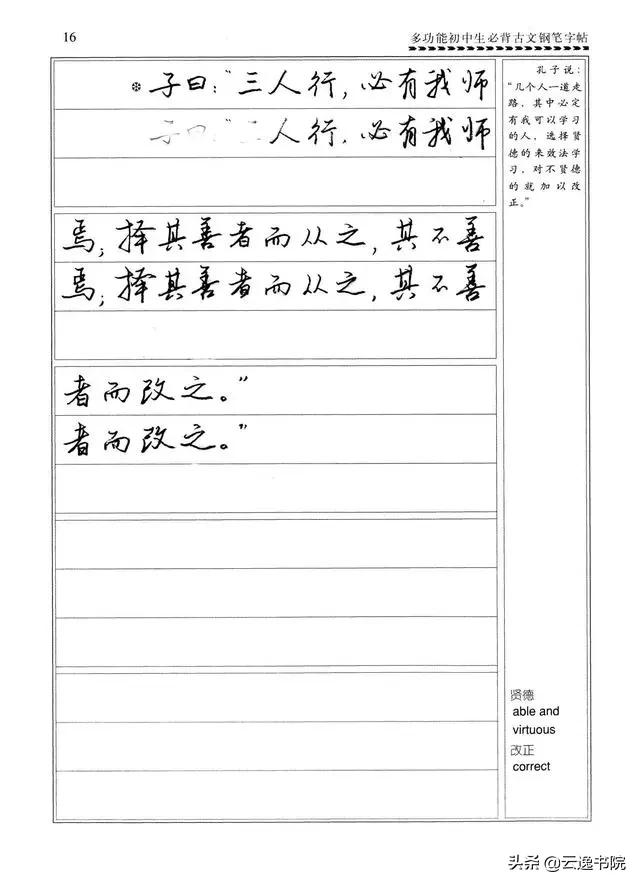 16
多功能初中生必背古文钢笔字帖
子曰:“三人行,必有我师
子曰:“三人行,必有我师
焉;择其善者而从之,其不善
焉;择其善者而从之,其不善
者而改之。”
者而改之。”
孔子说:
“几个人一道走
路,其中必定
有我可以学习
的人,选择贤
德的来效法学
习,对不贤德
的就加以改
正。”
贤德
able and
virtuous
改正
correct
头条@云逸书院